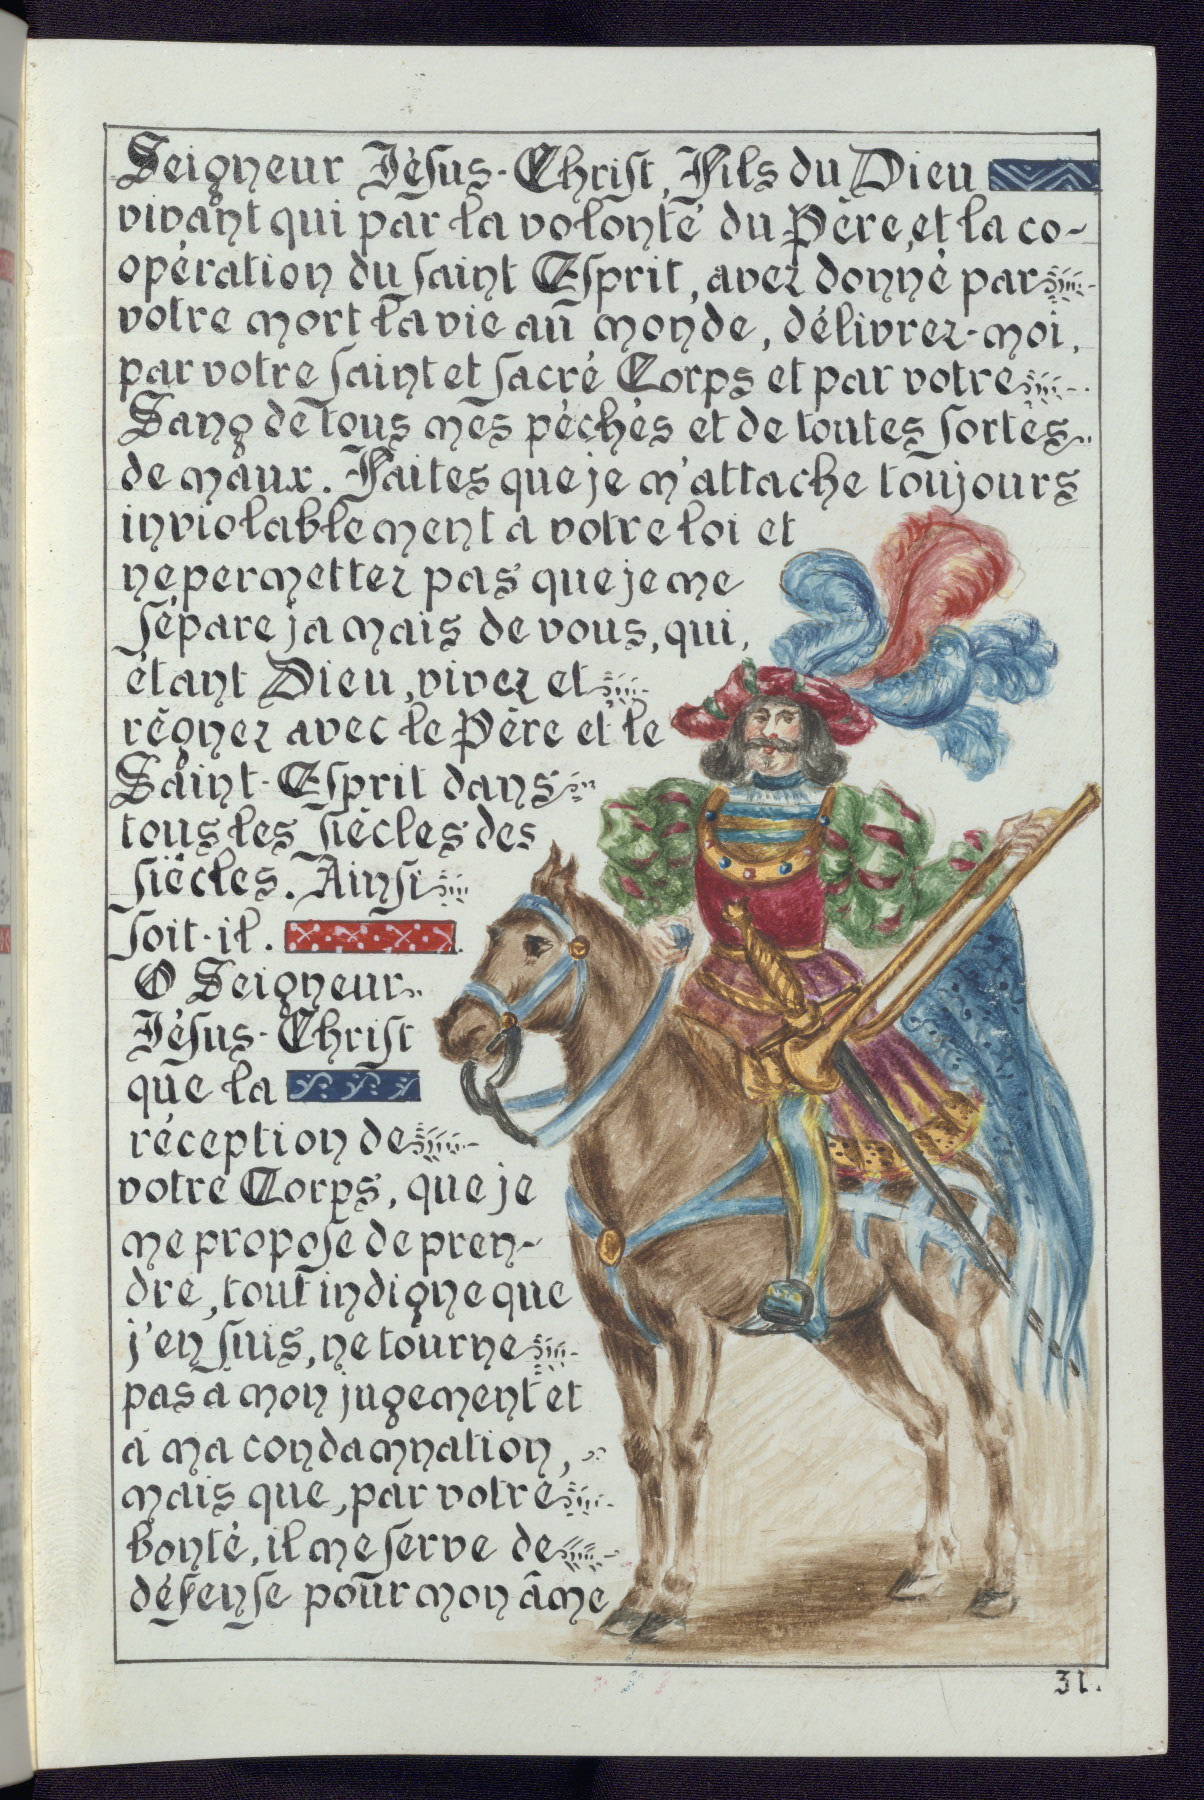 Seigneur Jésus-Christ, Fils du Dieu
vivant qui par la volonté du Père, et la co-
opération du saint Esprit, avez donné par
votre mort la vie au monde, délivrez-moi,
par votre saint et sacré Corps et par votre
Sang de tous mes péchés et de toutes sortes
de maux. Faites que je m'attache toujours
inviolablement a votre loi et
ne permettez pas que je me
sépare jamais de vous, qui,
étant Dieu, vivez et
régnez avec le Père et le
Saint-Esprit dans
tous les siècles des
siècles. Ainsi
soit-il.
O Seigneur
Jésus-Christ
que la
réception de
votre Corps, que je
me propose de pren-
dre, tout indigne que
j'en suis, ne tourne
pas à mon jugement et
à ma condamnation,
mais que, par votre
bonté, il me serve de
défense pour mon âme
31.